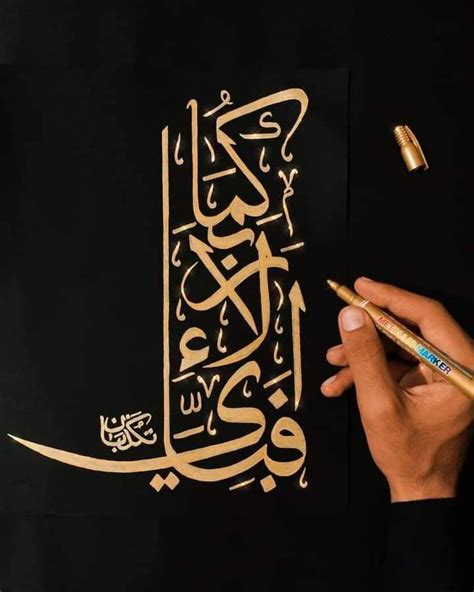 فبأي آلاء ربكما تكذبان
MARKER